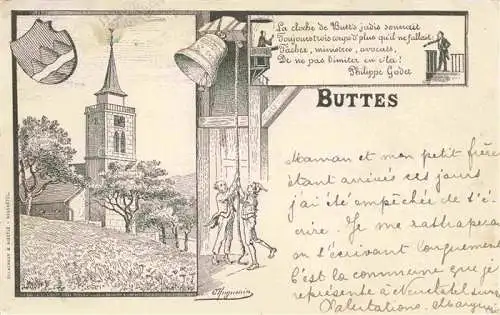 La cloche de Butt's jadis sonnait
Toujours trois coups d'plus qu'il ne fallait:
Tâchez, ministres, avocats,
De ne pas l'imiter en c'la!
Philippe Godet
BUTTES
Maman et mon petit frère
étant arrivés ces jours
j'ai été empêchée de t'é-
crire. Je me rattraperai
en t'écrivant longuement
C'est la commune que je
représente à Neuchâtel
Salutations. Marguerite